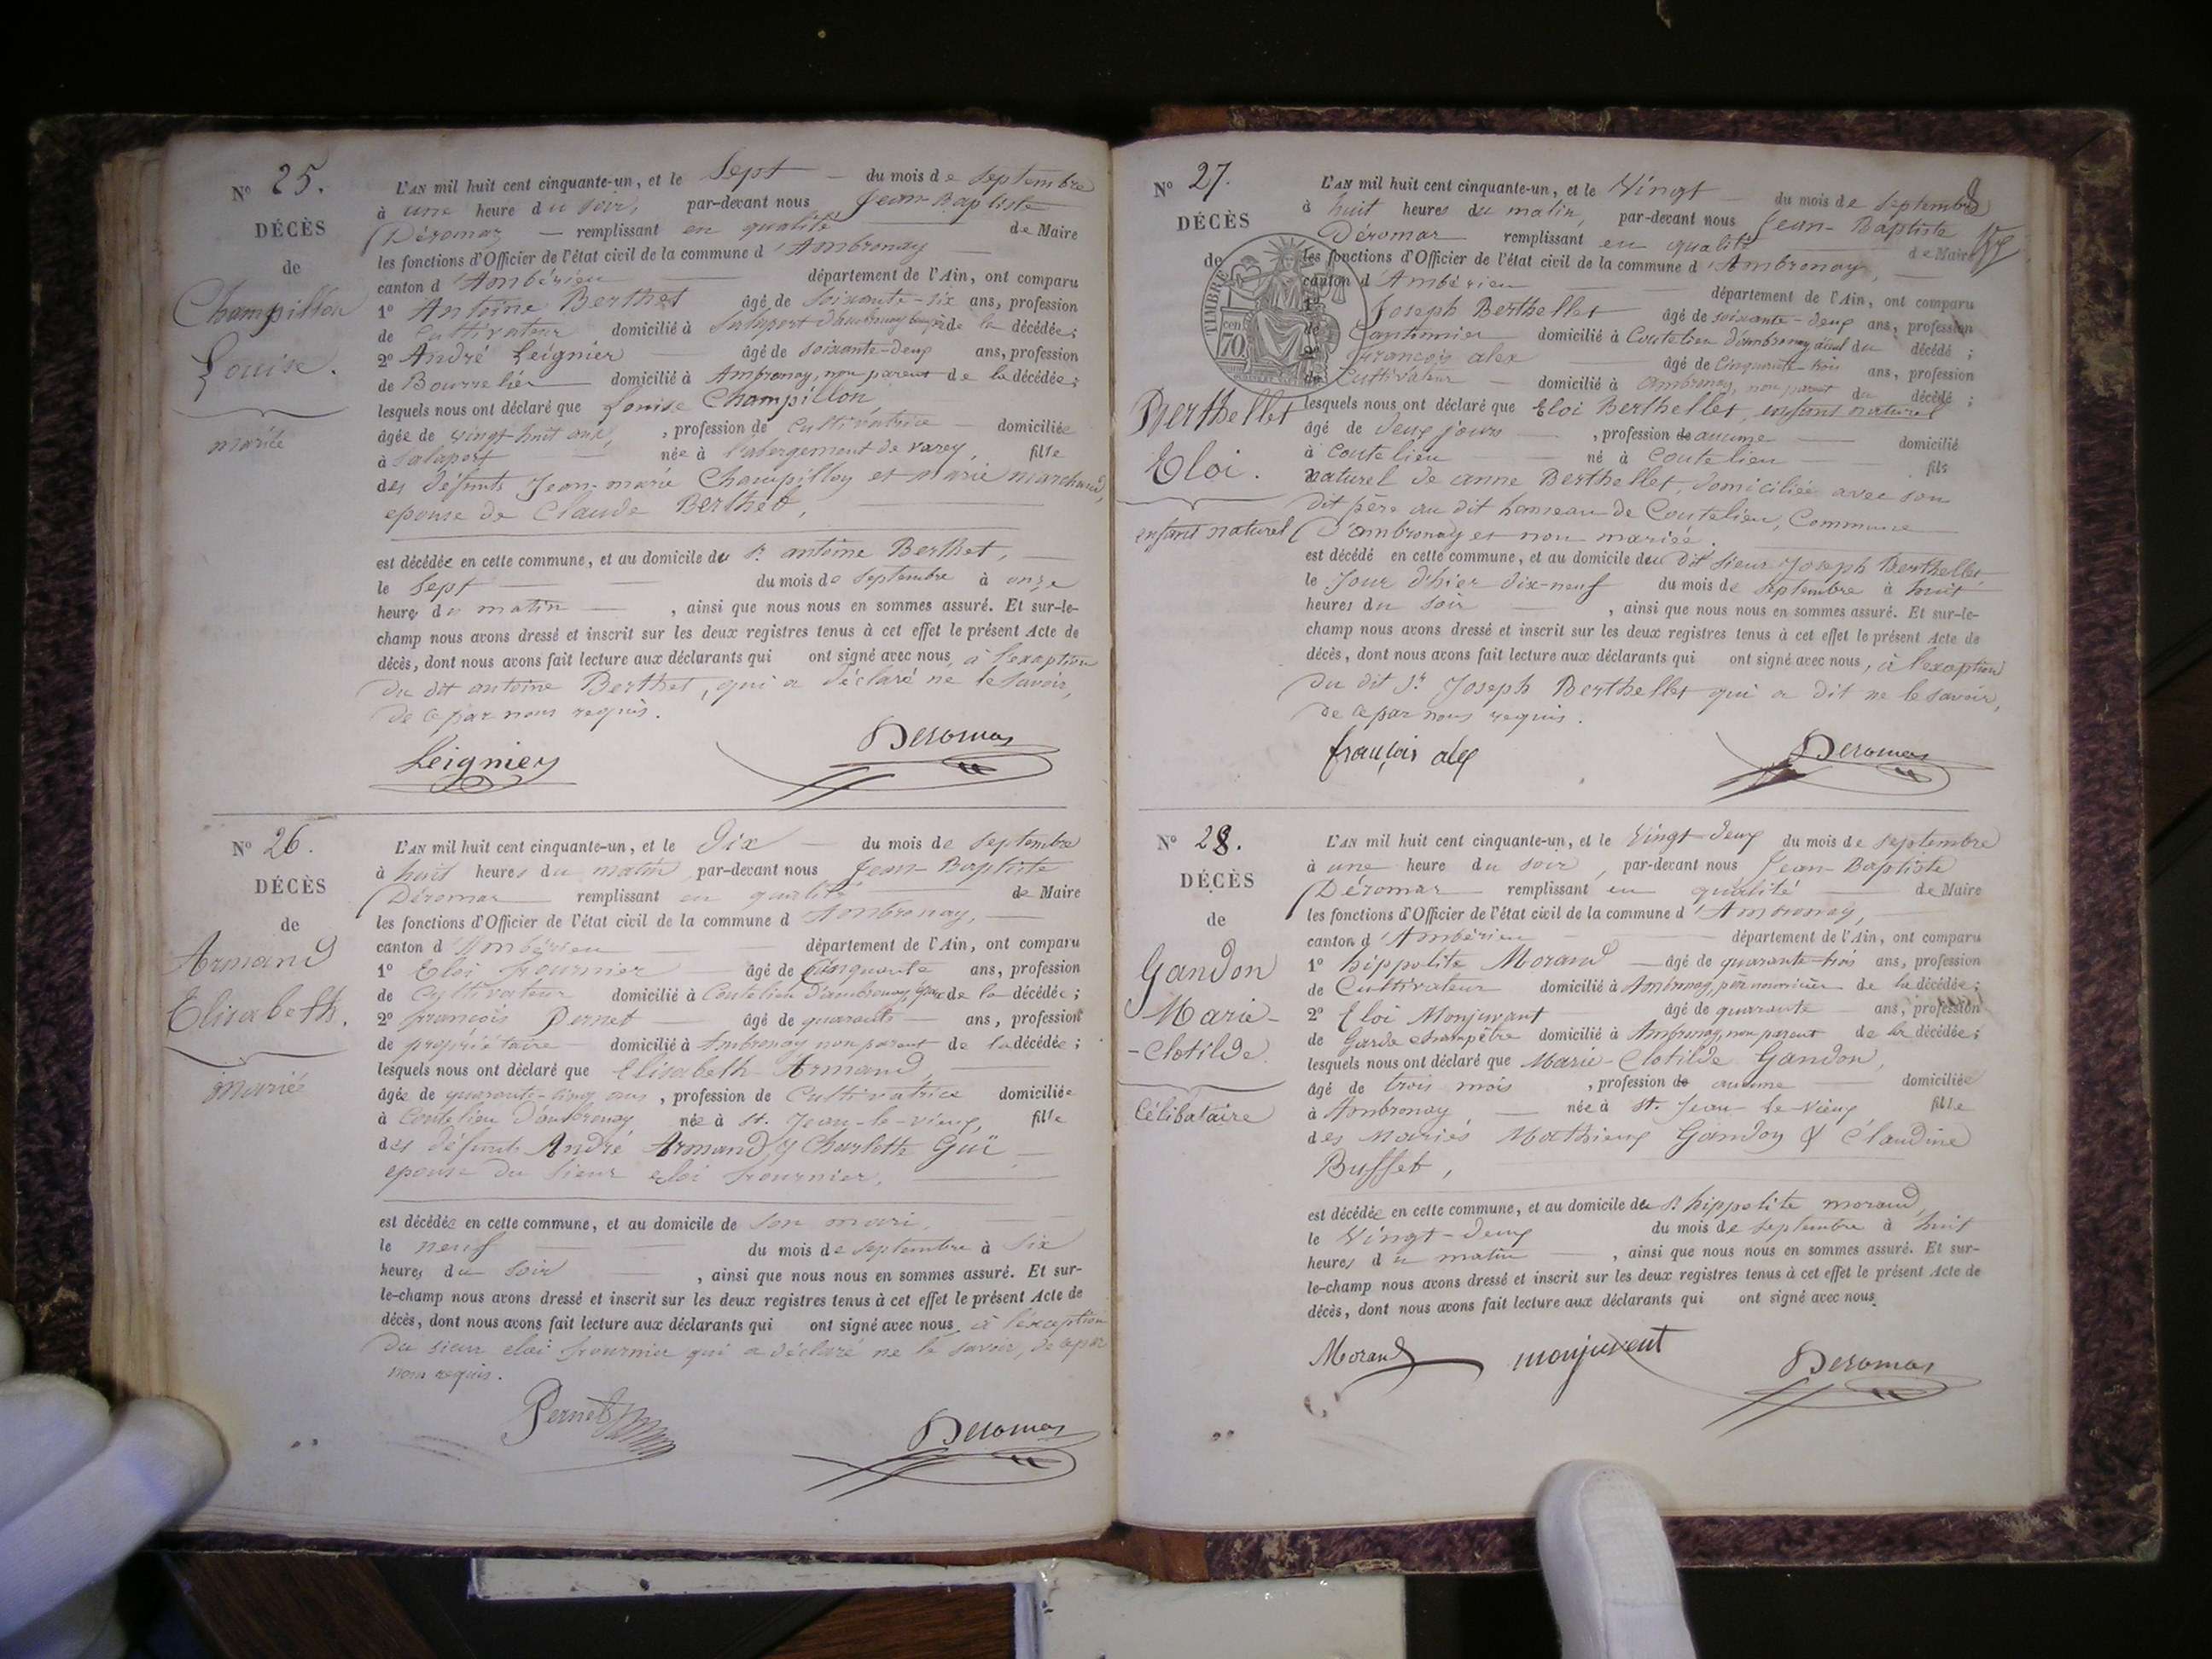 N° 25.
DÉCÈS
de
Champillon
Louise.
mariée
L'AN mil huit cent cinquante-un, et le Sept du mois de Septembre
à une heure du soir, par-devant nous Jean-Baptiste
Déromas remplissant en qualité de Maire
les fonctions d'Officier de l'état civil de la commune d'Ambronay
canton d'Ambérieu département de l'Ain, ont comparu
1° Antoine Berthet âgé de soixante-six ans, profession
de Cultivateur domicilié à Salaport d'ambronay de la décédée;
2° André Leignier âgé de soixante-deux ans, profession
de Bourrelier domicilié à Ambronay, non parent de la décédée;
lesquels nous ont déclaré que Louise Champillon
âgée de vingt-huit ans, profession de Cultivatrice domiciliée
à Salaport née à l'abergement de varey, fille
des défunts Jean-marie Champillon et Marie marchand,
epouse de Claude Berthet,
est décédée en cette commune, et au domicile du Sr antoine Berthet,
le Sept du mois de Septembre à onze
heures du matin, ainsi que nous nous en sommes assuré. Et sur-le-
champ nous avons dressé et inscrit sur les deux registres tenus à cet effet le présent Acte de
décès, dont nous avons fait lecture aux déclarants qui ont signé avec nous à l'exaption
du dit antoine Berthet, qui a déclaré ne le savoir,
de ce par nous requis.
Leignier Deromas
N° 26.
DÉCÈS
de
Armand
Elisabeth.
mariée
L'AN mil huit cent cinquante-un, et le Dix du mois de Septembre
à huit heures du matin par-devant nous Jean-Baptiste
Déromas remplissant en qualité de Maire
les fonctions d'Officier de l'état civil de la commune d'Ambronay,
canton d'Ambérieu département de l'Ain, ont comparu
1° Eloi fournier âgé de Cinquante ans, profession
de Cultivateur domicilié à Coutelieu d'ambronay, de la décédée;
2° françois Pernet âgé de quarante ans, profession
de propriétaire domicilié à Ambronay non parent de la décédée;
lesquels nous ont déclaré que Elisabeth Armand,
âgée de quarante-cinq ans, profession de Cultivatrice domiciliée
à Coutelieu d'ambronay, née à St. Jean-le-vieux, fille
des défunts André Armand & Charlotte Guï
epouse du sieur eloi fournier,
est décédée en cette commune, et au domicile de son mari,
le neuf du mois de Septembre à six
heures du soir, ainsi que nous nous en sommes assuré. Et sur-
le-champ nous avons dressé et inscrit sur les deux registres tenus à cet effet le présent Acte de
décès, dont nous avons fait lecture aux déclarants qui ont signé avec nous à l'exaption
du sieur eloi fournier qui a déclaré ne le savoir, de ce par
nous requis.
Pernet Deromas
N° 27.
8
DÉCÈS
de
TIMBRE
70 cen
Berthellet
Eloi.
enfant naturel
L'AN mil huit cent cinquante-un, et le Vingt du mois de Septembre
à huit heures du matin, par-devant nous Jean-Baptiste
Déromas remplissant en qualité de Maire
les fonctions d'Officier de l'état civil de la commune d'Ambronay,
canton d'Ambérieu département de l'Ain, ont comparu
1° Joseph Berthellet âgé de soixante-deux ans, profession
de Cantonnier domicilié à Coutelieu d'ambronay aïeul du décédé;
2° francois alex âgé de Cinquante-trois ans, profession
de Cultivateur domicilié à Ambronay, non parent du décédé;
lesquels nous ont déclaré que Eloi Berthellet, enfant naturel
âgé de deux jours, profession de aucune domicilié
à Coutelieu né à Coutelieu fils
naturel de anne Berthellet, domiciliée avec son
dit père au dit hameau de Coutelieu, Commune
d'ambronay et non mariée.
est décédé en cette commune, et au domicile du dit sieur Joseph Berthellet
le Jour d'hier dix-neuf du mois de Septembre à huit
heures du soir, ainsi que nous nous en sommes assuré. Et sur-le-
champ nous avons dressé et inscrit sur les deux registres tenus à cet effet le présent Acte de
décès, dont nous avons fait lecture aux déclarants qui ont signé avec nous, à l'exaption
du dit Sr. Joseph Berthellet qui a dit ne le savoir,
de ce par nous requis.
françois alex Deromas
N° 28.
DÉCÈS
de
Gandon
Marie-
-Clotilde.
Célibataire
L'AN mil huit cent cinquante-un, et le Vingt-deux du mois de Septembre
à une heure du soir, par-devant nous Jean-Baptiste
Déromas remplissant en qualité de Maire
les fonctions d'Officier de l'état civil de la commune d'Ambronay,
canton d'Ambérieu département de l'Ain, ont comparu
1° hippolite Morand âgé de quarante-trois ans, profession
de Cultivateur domicilié à Ambronay, père nourricier de la décédée;
2° Eloi Monjuvant âgé de quarante ans, profession
de Garde champêtre domicilié à Ambronay, non parent de la décédée;
lesquels nous ont déclaré que Marie-Clotilde Gandon,
âgé de trois mois, profession de aucune domiciliée
à Ambronay née à St. Jean-le-Vieux fille
des Mariés Mathieux Gandon & Claudine
Buffet,
est décédée en cette commune, et au domicile du Sr hippolite morand,
le Vingt-deux du mois de Septembre à huit
heures du matin, ainsi que nous nous en sommes assuré. Et sur-
le-champ nous avons dressé et inscrit sur les deux registres tenus à cet effet le présent Acte de
décès, dont nous avons fait lecture aux déclarants qui ont signé avec nous.
Morand monjuvent Deromas